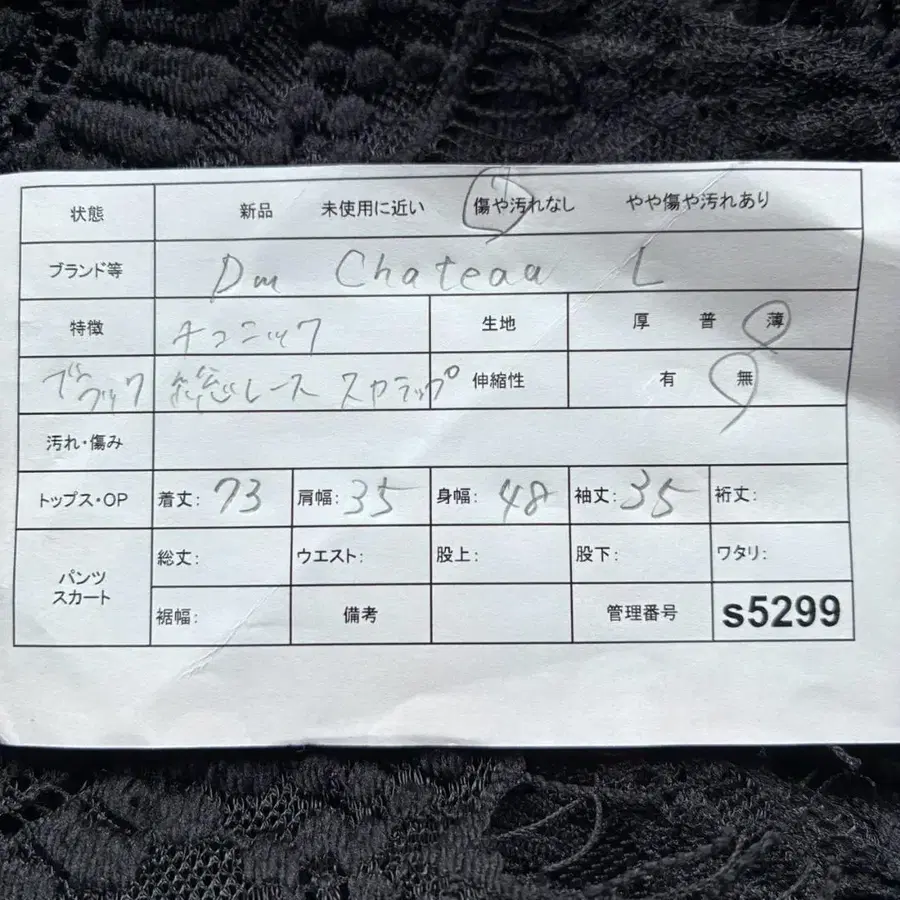 状態 新品 未使用に近い 傷や汚れなし やや傷や汚れあり
ブランド等 Dm Chateau L
特徴 チュニック 生地 厚 普 薄
ブラック 総レース スカラップ 伸縮性 有 無
汚れ・傷み
トップス・OP 着丈: 73 肩幅: 35 身幅: 48 袖丈: 35 裄丈:
パンツ スカート 総丈: ウエスト: 股上: 股下: ワタリ:
裾幅: 備考 管理番号 s5299